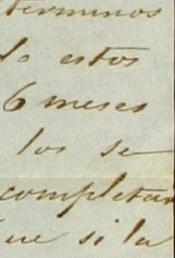 terminos
lo estos
6 meses
los se
completar
que si la